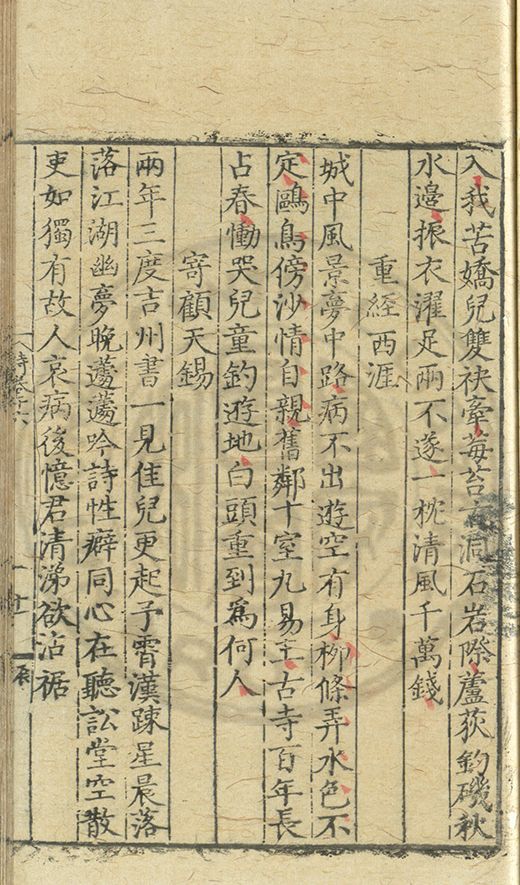 入我苦嬌兒雙袂牽莓苔古洞石岩際蘆荻釣磯秋
水邊振衣濯足兩不遂一枕清風千萬錢
重經西涯
城中風景夢中路病不出遊空有身柳條弄水色不
定鷗鳥傍沙情自親舊鄰十室九易主古寺百年長
占春慟哭兒童釣遊地白頭重到爲何人
寄顧天錫
兩年三度吉州書一見佳兒更起予霄漢踈星晨落
落江湖幽夢晚蘧蘧吟詩性癖同心在聽訟堂空散
吏如獨有故人哀病後憶君清涕欲沾裾
詩卷十六
十二